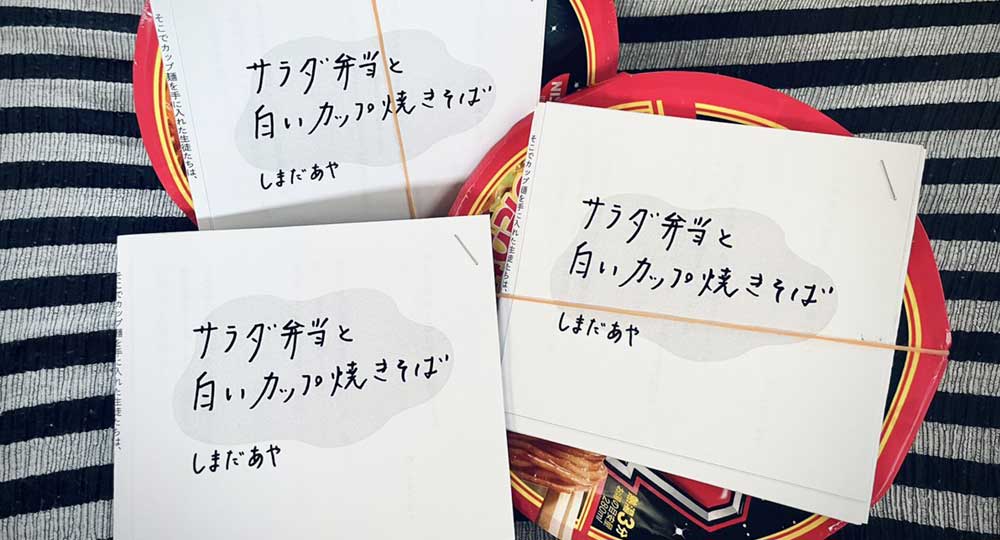 そこでカップ麺を手に入れた生徒たちは、
サラダ弁当と
白いカップ焼きそば
しまだあや
そこでカップ麺を手に入れた生徒たちは、
サラダ弁当と
白いカップ焼きそば
しまだあや
そこでカップ麺を手に入れた生徒たちは、
サラダ弁当と
白いカップ焼きそば
しまだあや
熱湯3分